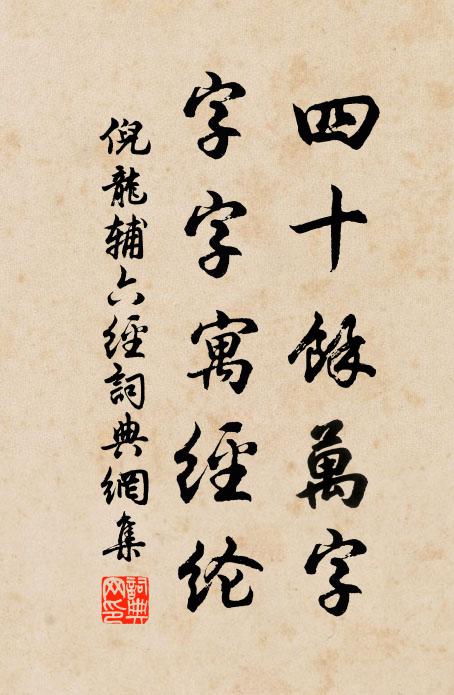 四十餘萬字
字字寓經纶
倪龍辅六經詞典網集
詞典網印